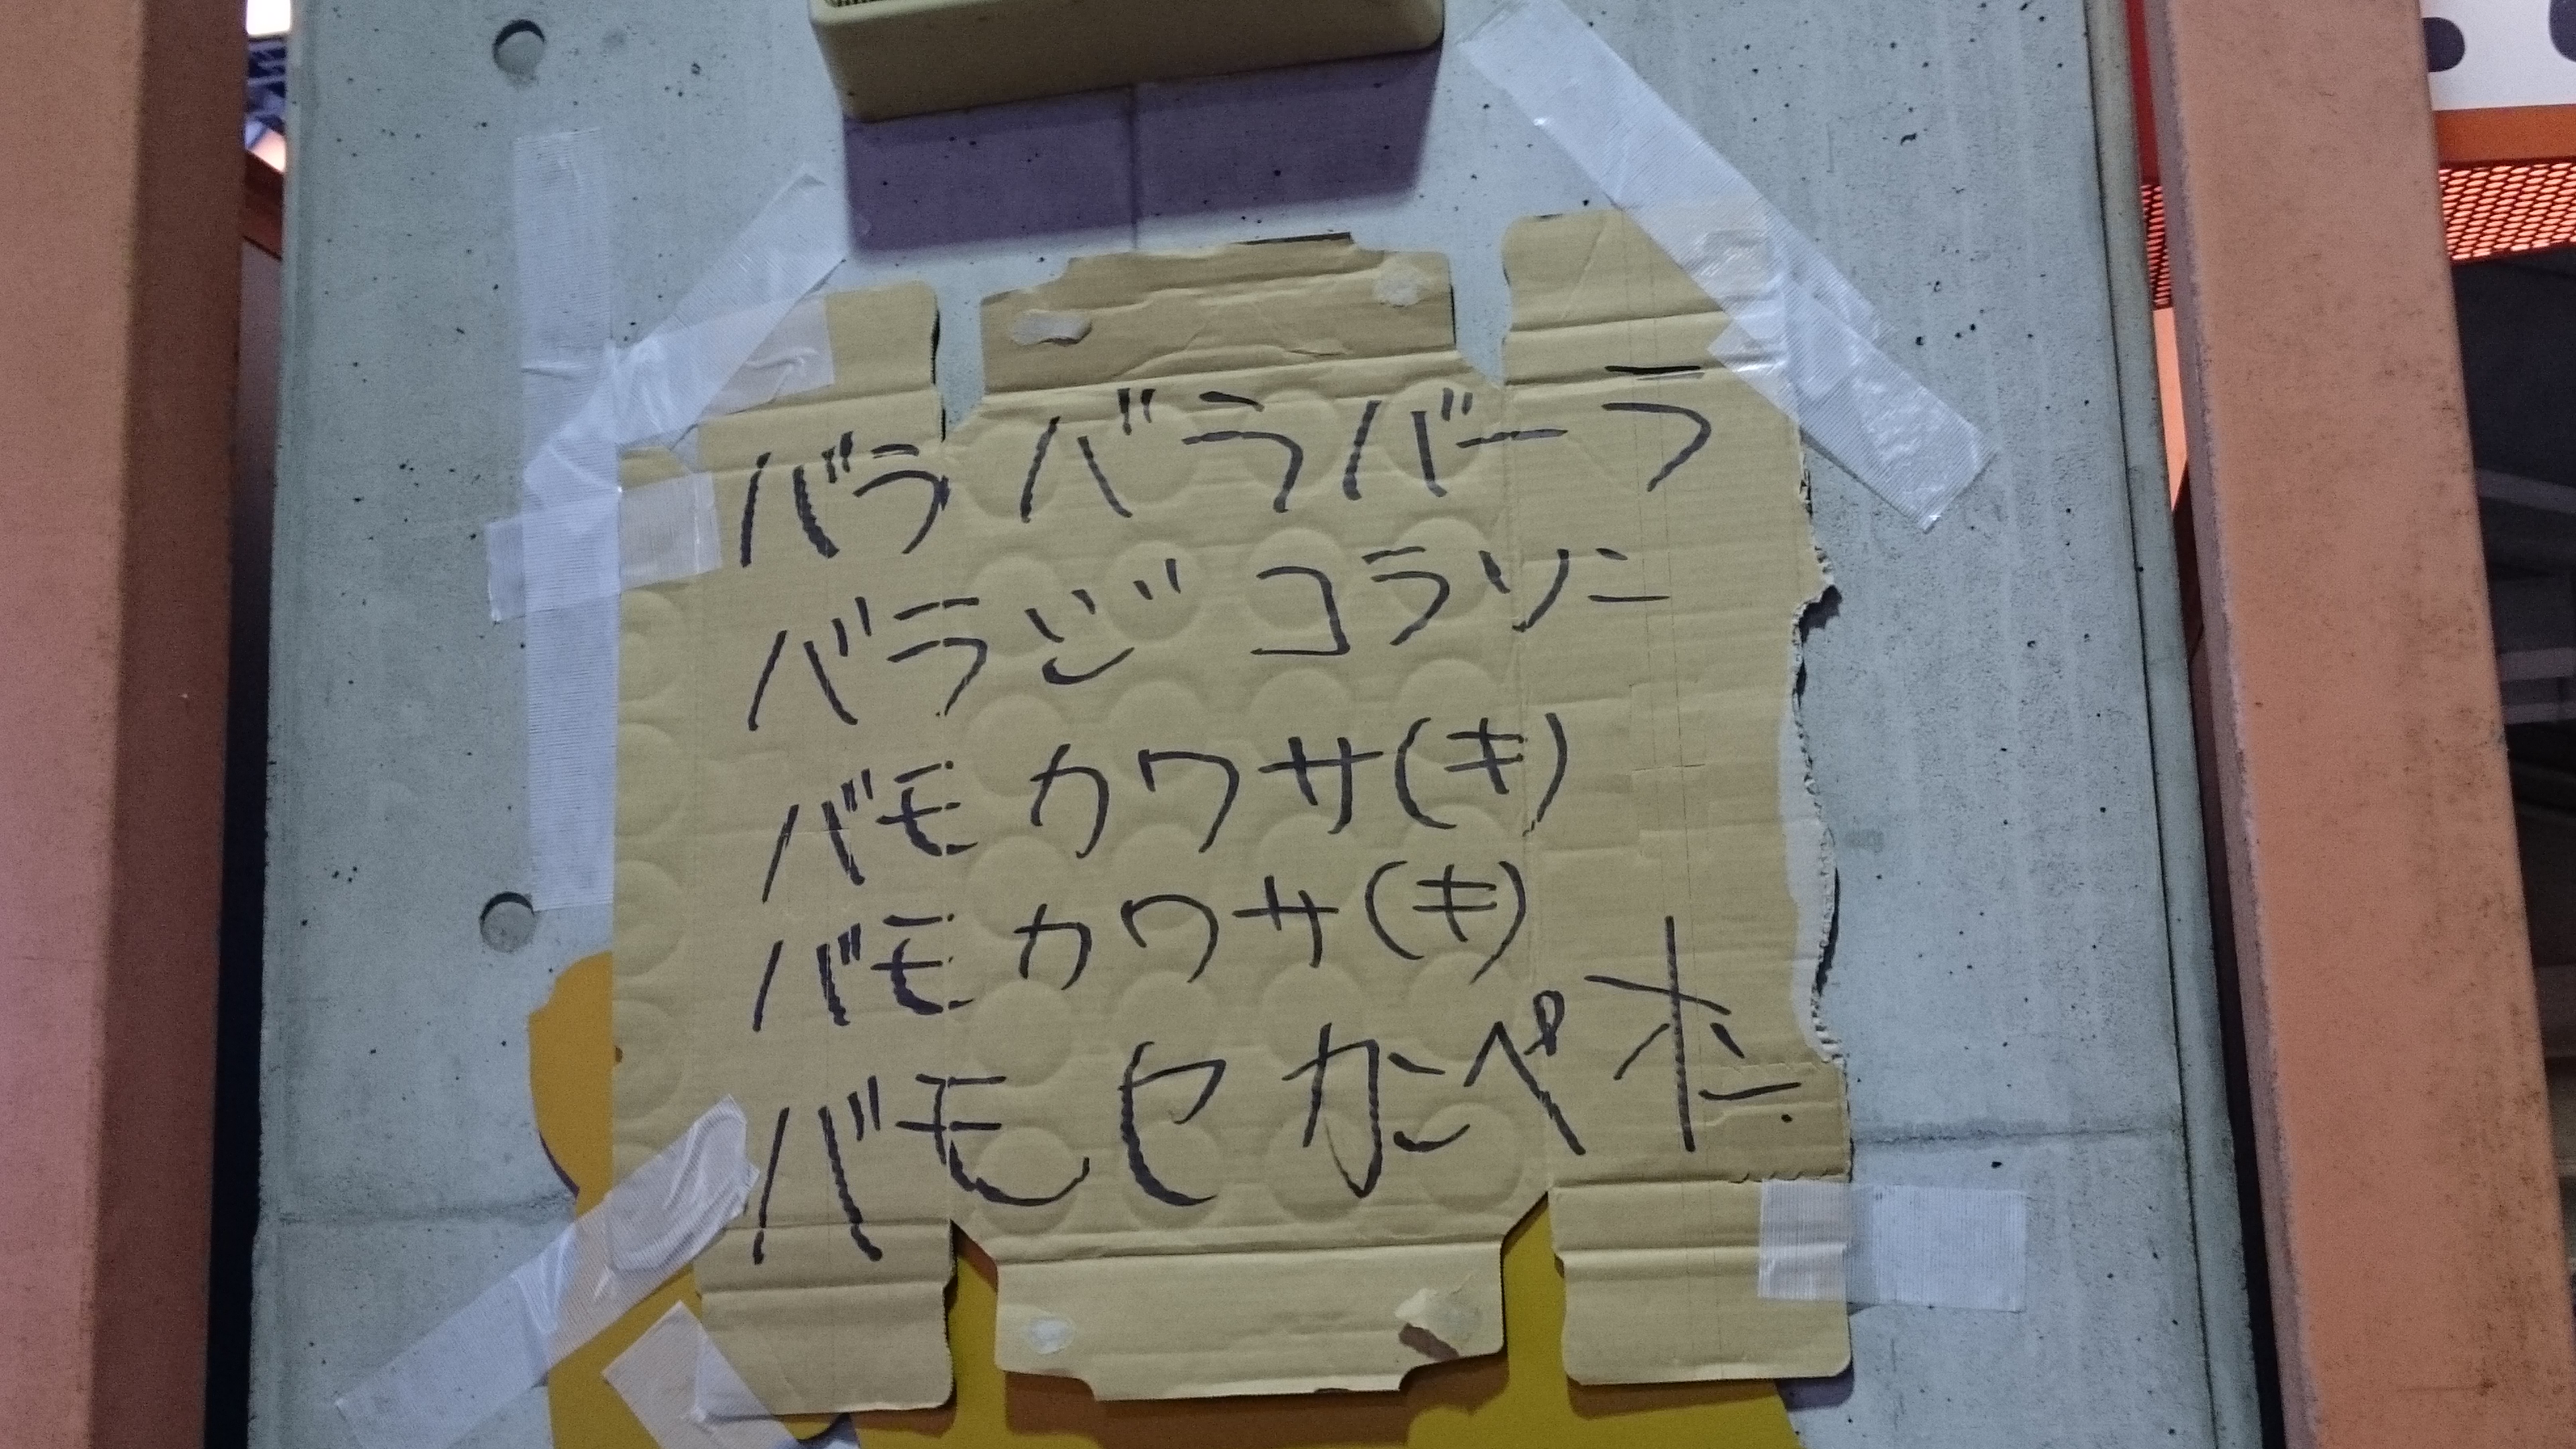 バラ バラバーラ
バラジ コラソン
バモ カワサ(キ)
バモ カワサ(キ)
バモ セ カンペオン